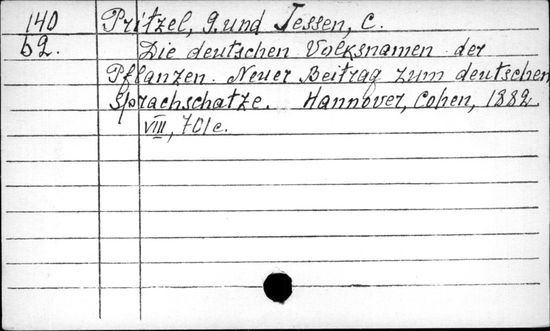 140 Pritzel, G. und Jessen, C.
b2. Die deutschen Volksnamen der
Pflanzen. Neuer Beitrag zum deutschen
Sprachschatze. Hannover, Cohen, 1882.
VIII, 701 c.